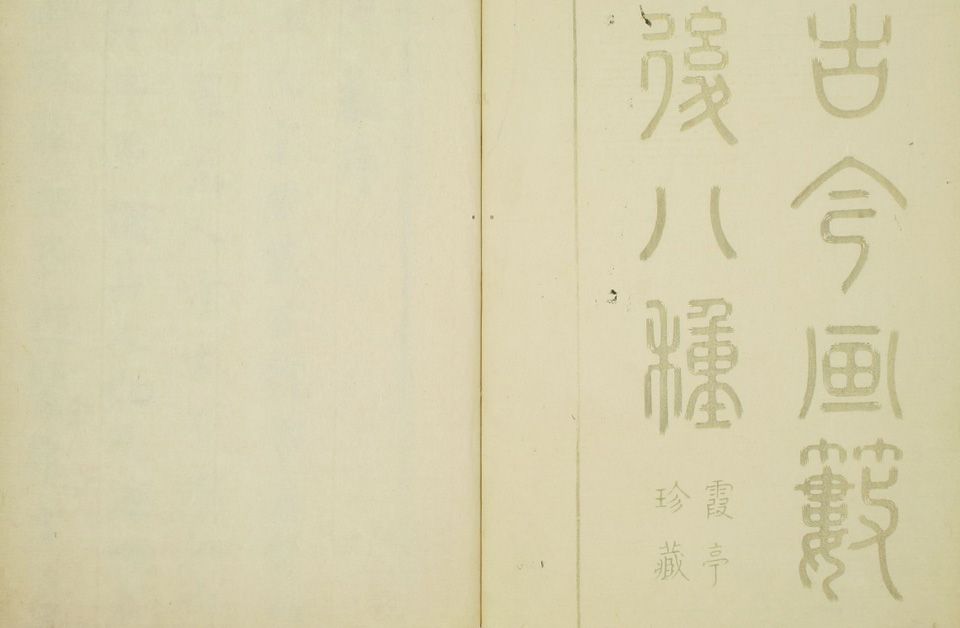 古今画籔
後八種
霞亭
珍藏